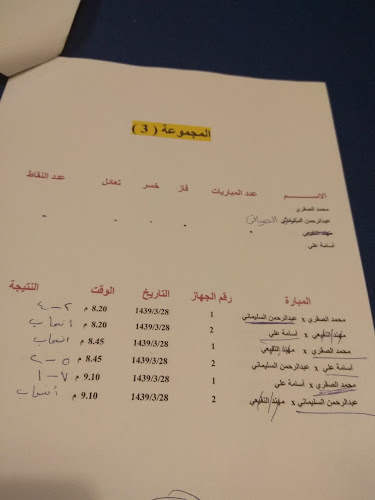 المجموعة ( 3 )
الاســـــم عدد المباريات فاز خسر تعادل عدد النقاط
محمد الصقري
عبدالرحمن السليماني
مهند النفيعي
أسامة علي
المباراة رقم الجهاز التاريخ الوقت النتيجة
محمد الصقري x عبدالرحمن السليماني 1 1439/3/28 8.20 م ٢-٤
مهند النفيعي x أسامة علي 2 1439/3/28 8.20 م انسحاب
محمد الصقري x مهند النفيعي 1 1439/3/28 8.45 م انسحاب
أسامة علي x عبدالرحمن السليماني 2 1439/3/28 8.45 م ٥-٢
محمد الصقري x أسامة علي 1 1439/3/28 9.10 م ٧-١
عبدالرحمن السليماني x مهند النفيعي 2 1439/3/28 9.10 م انسحاب